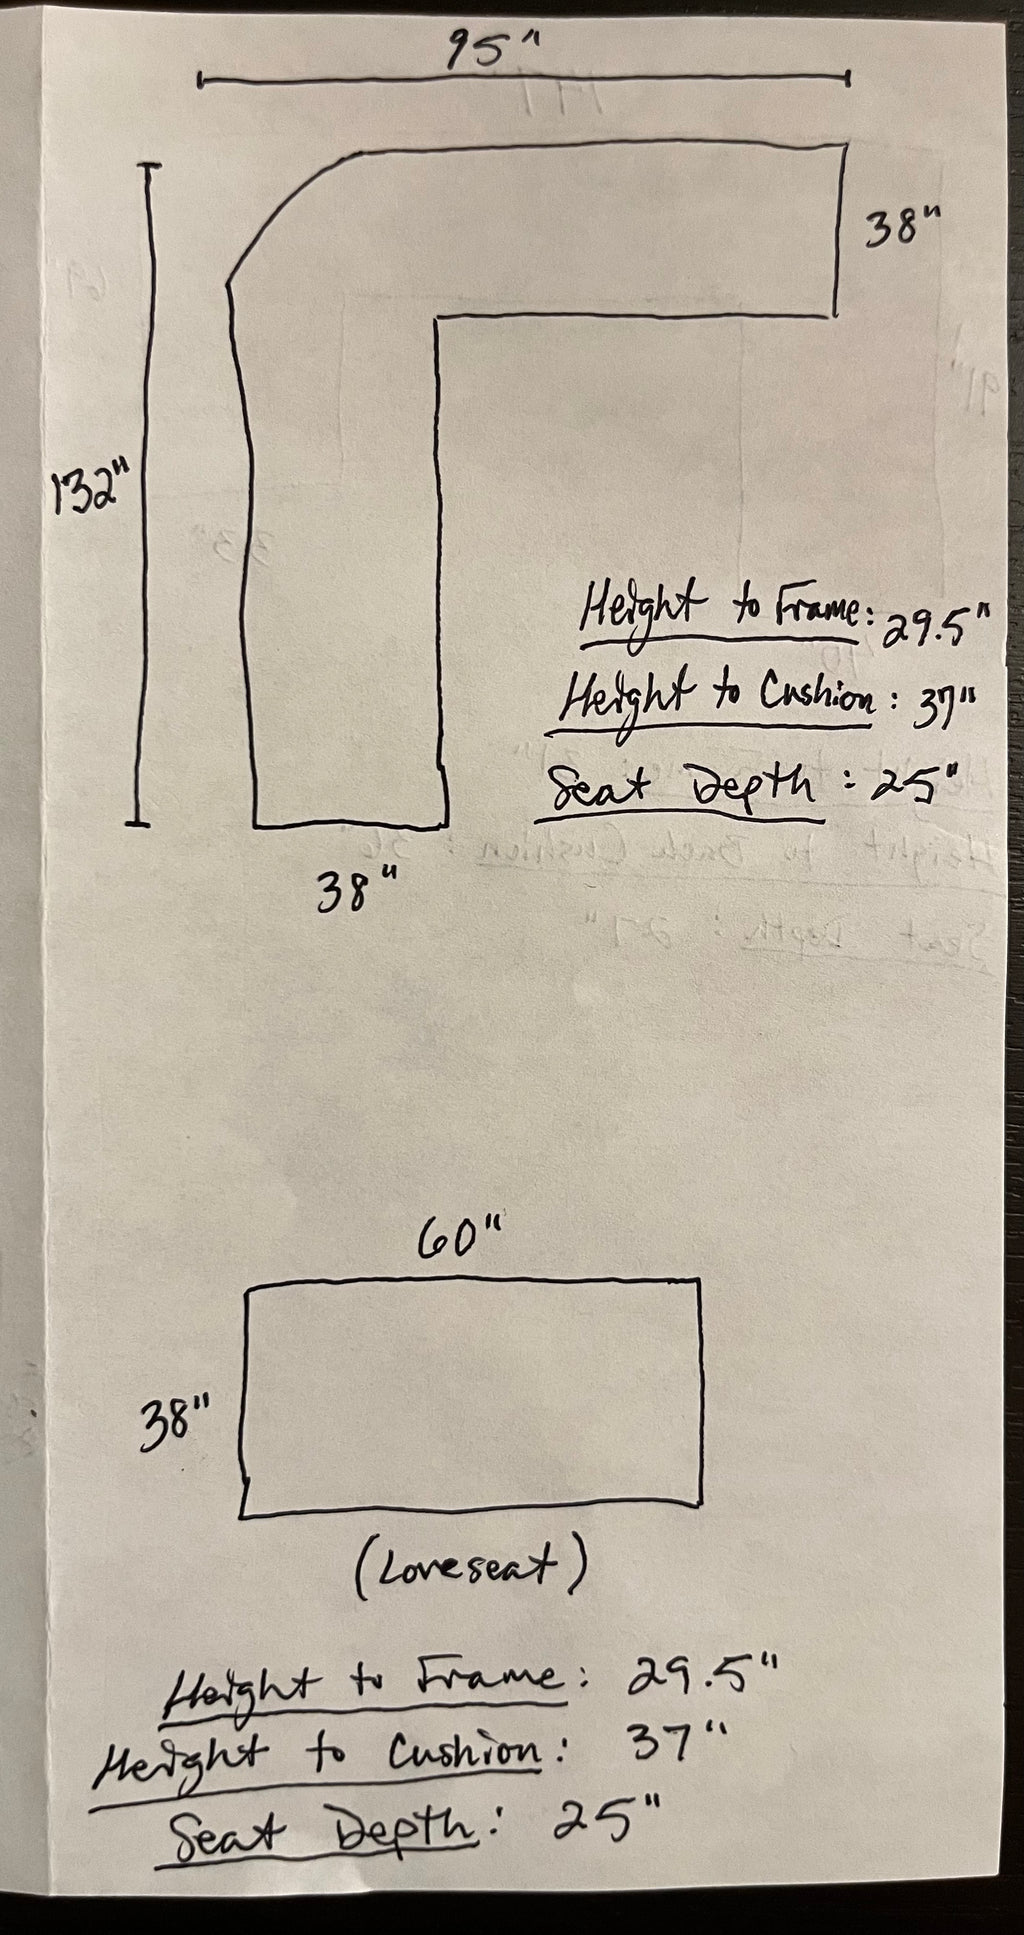 95"
38"
132"
Height to Frame: 29.5"
Height to Cushion: 37"
Seat Depth: 25"
38"
60"
38"
(Loveseat)
Height to Frame: 29.5"
Height to Cushion: 37"
Seat Depth: 25"